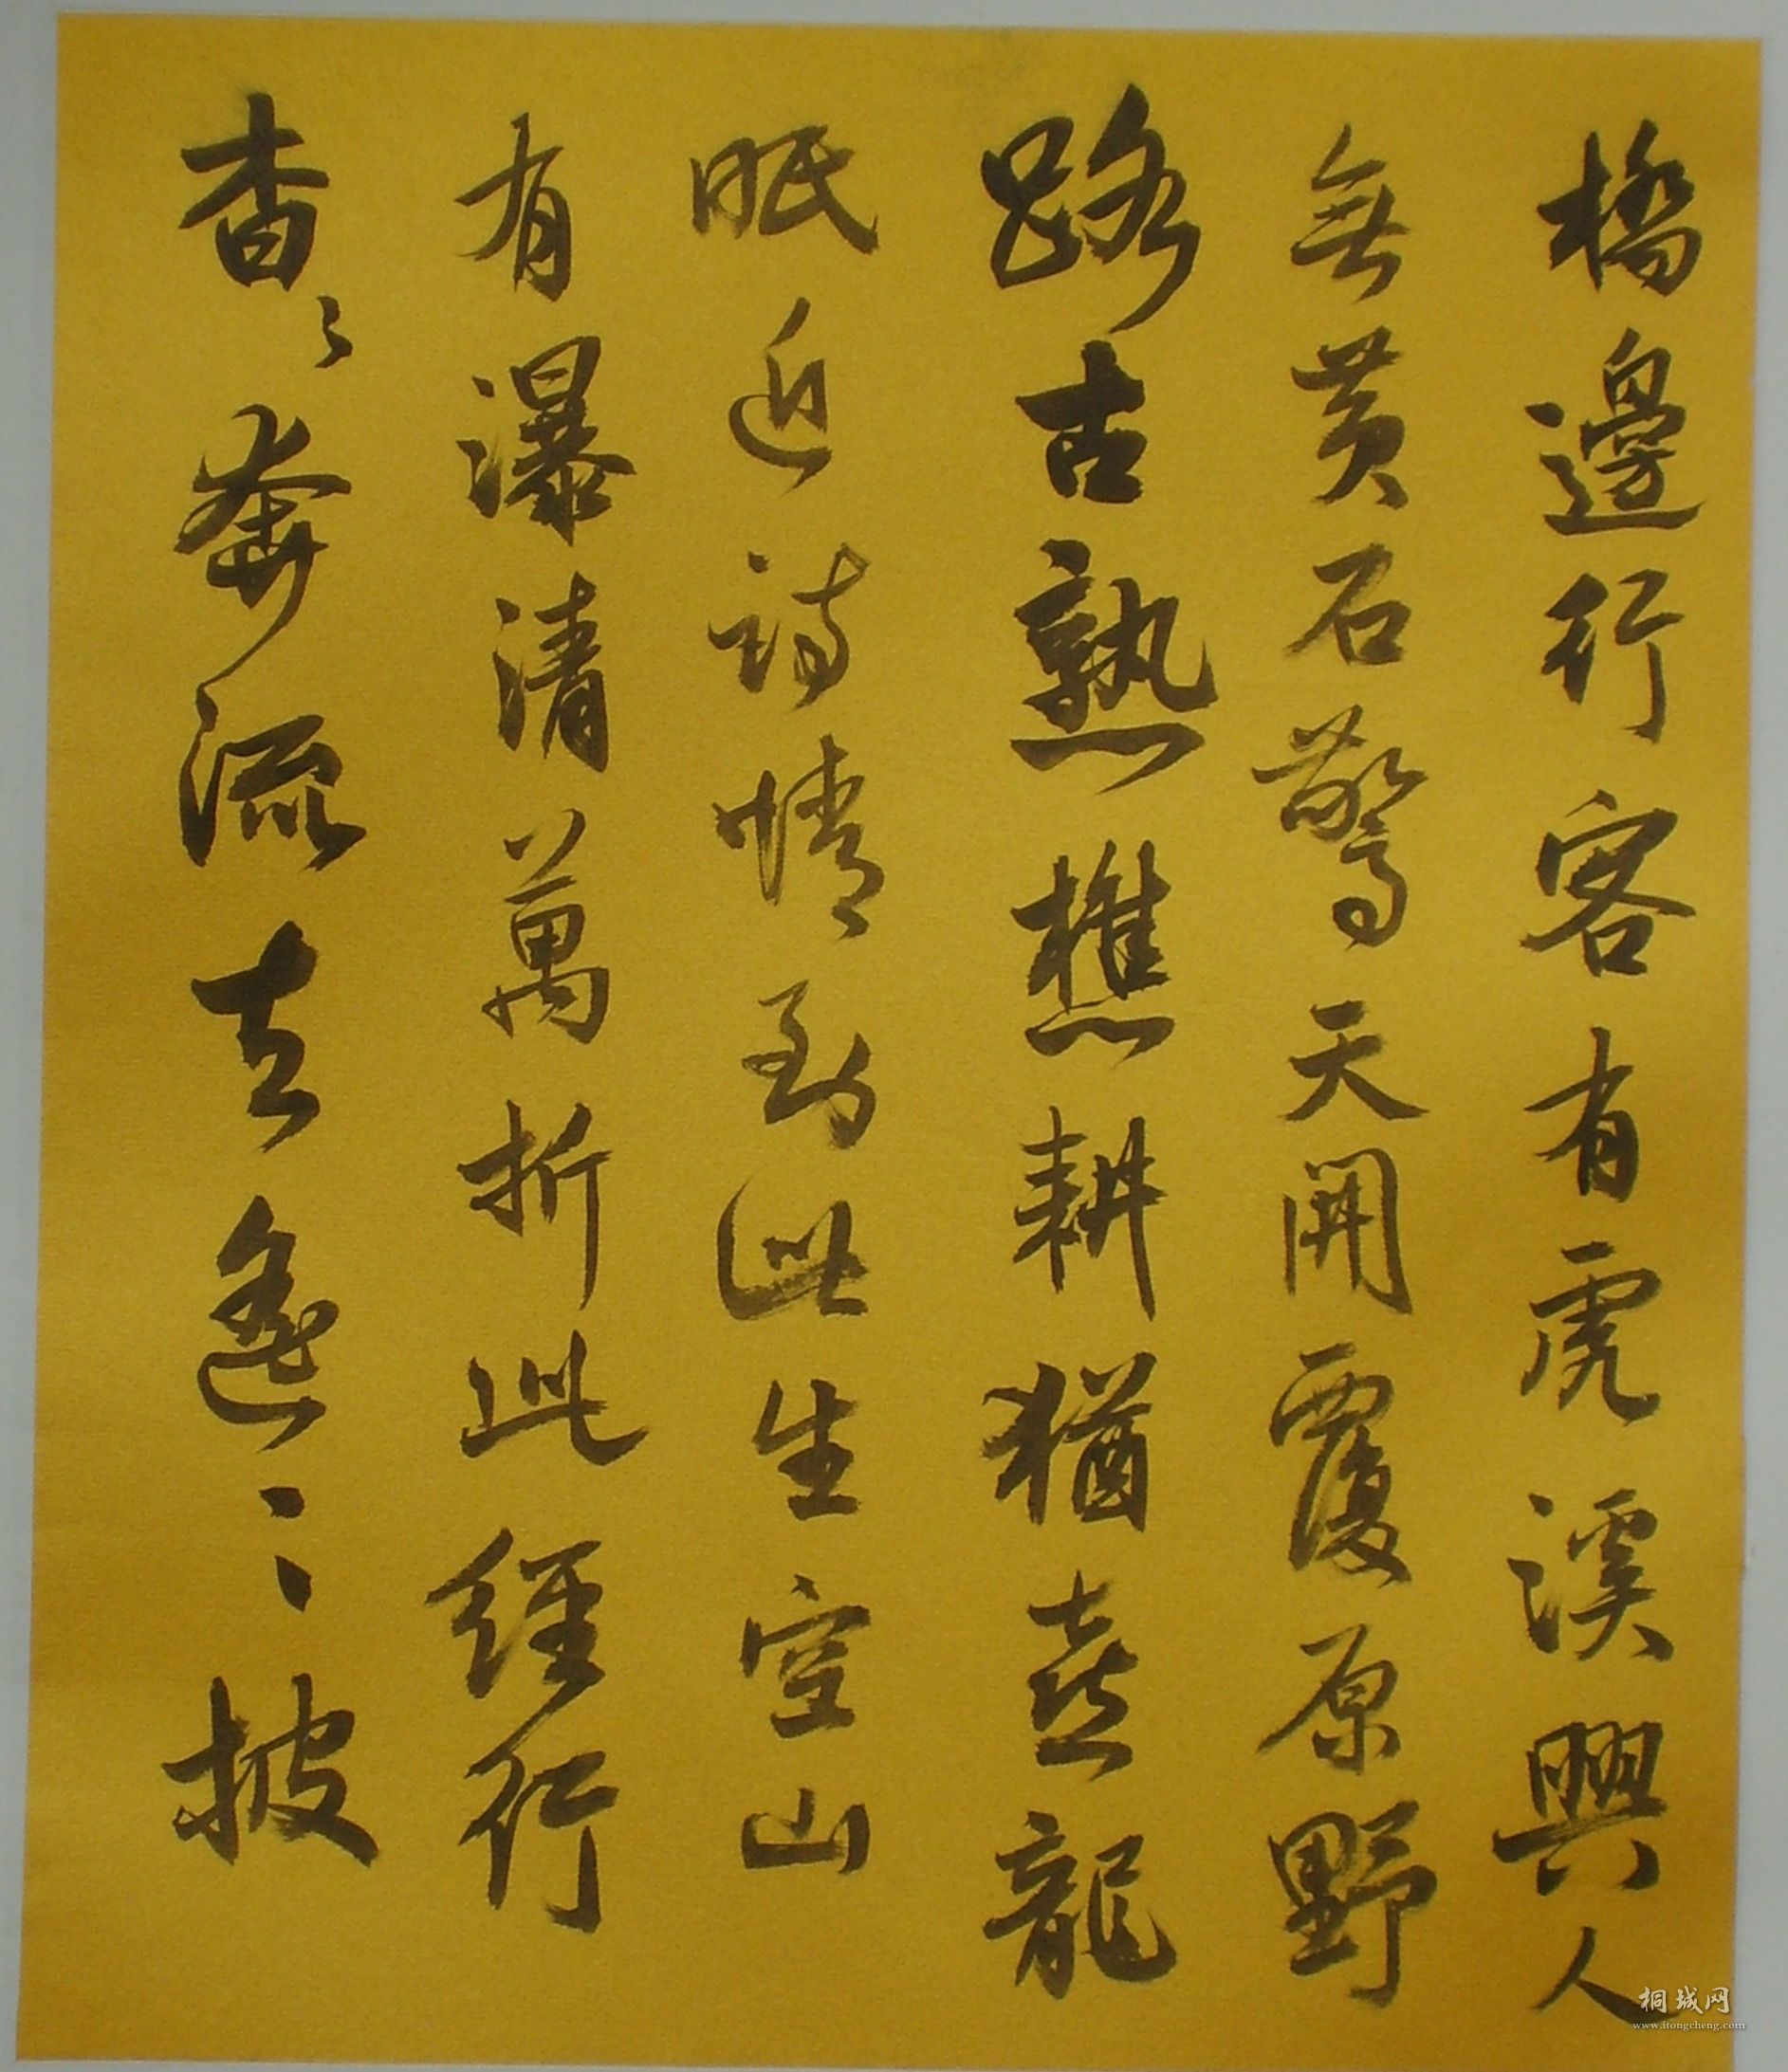 橋邊行客有虎溪興人
無黃石驚天開覆原野
路古熟樵耕猶喜龍
眠近詩情到此生空山
有瀑清萬折此經行
杳々奔流去遙々披
桐城网
www.itongcheng.com